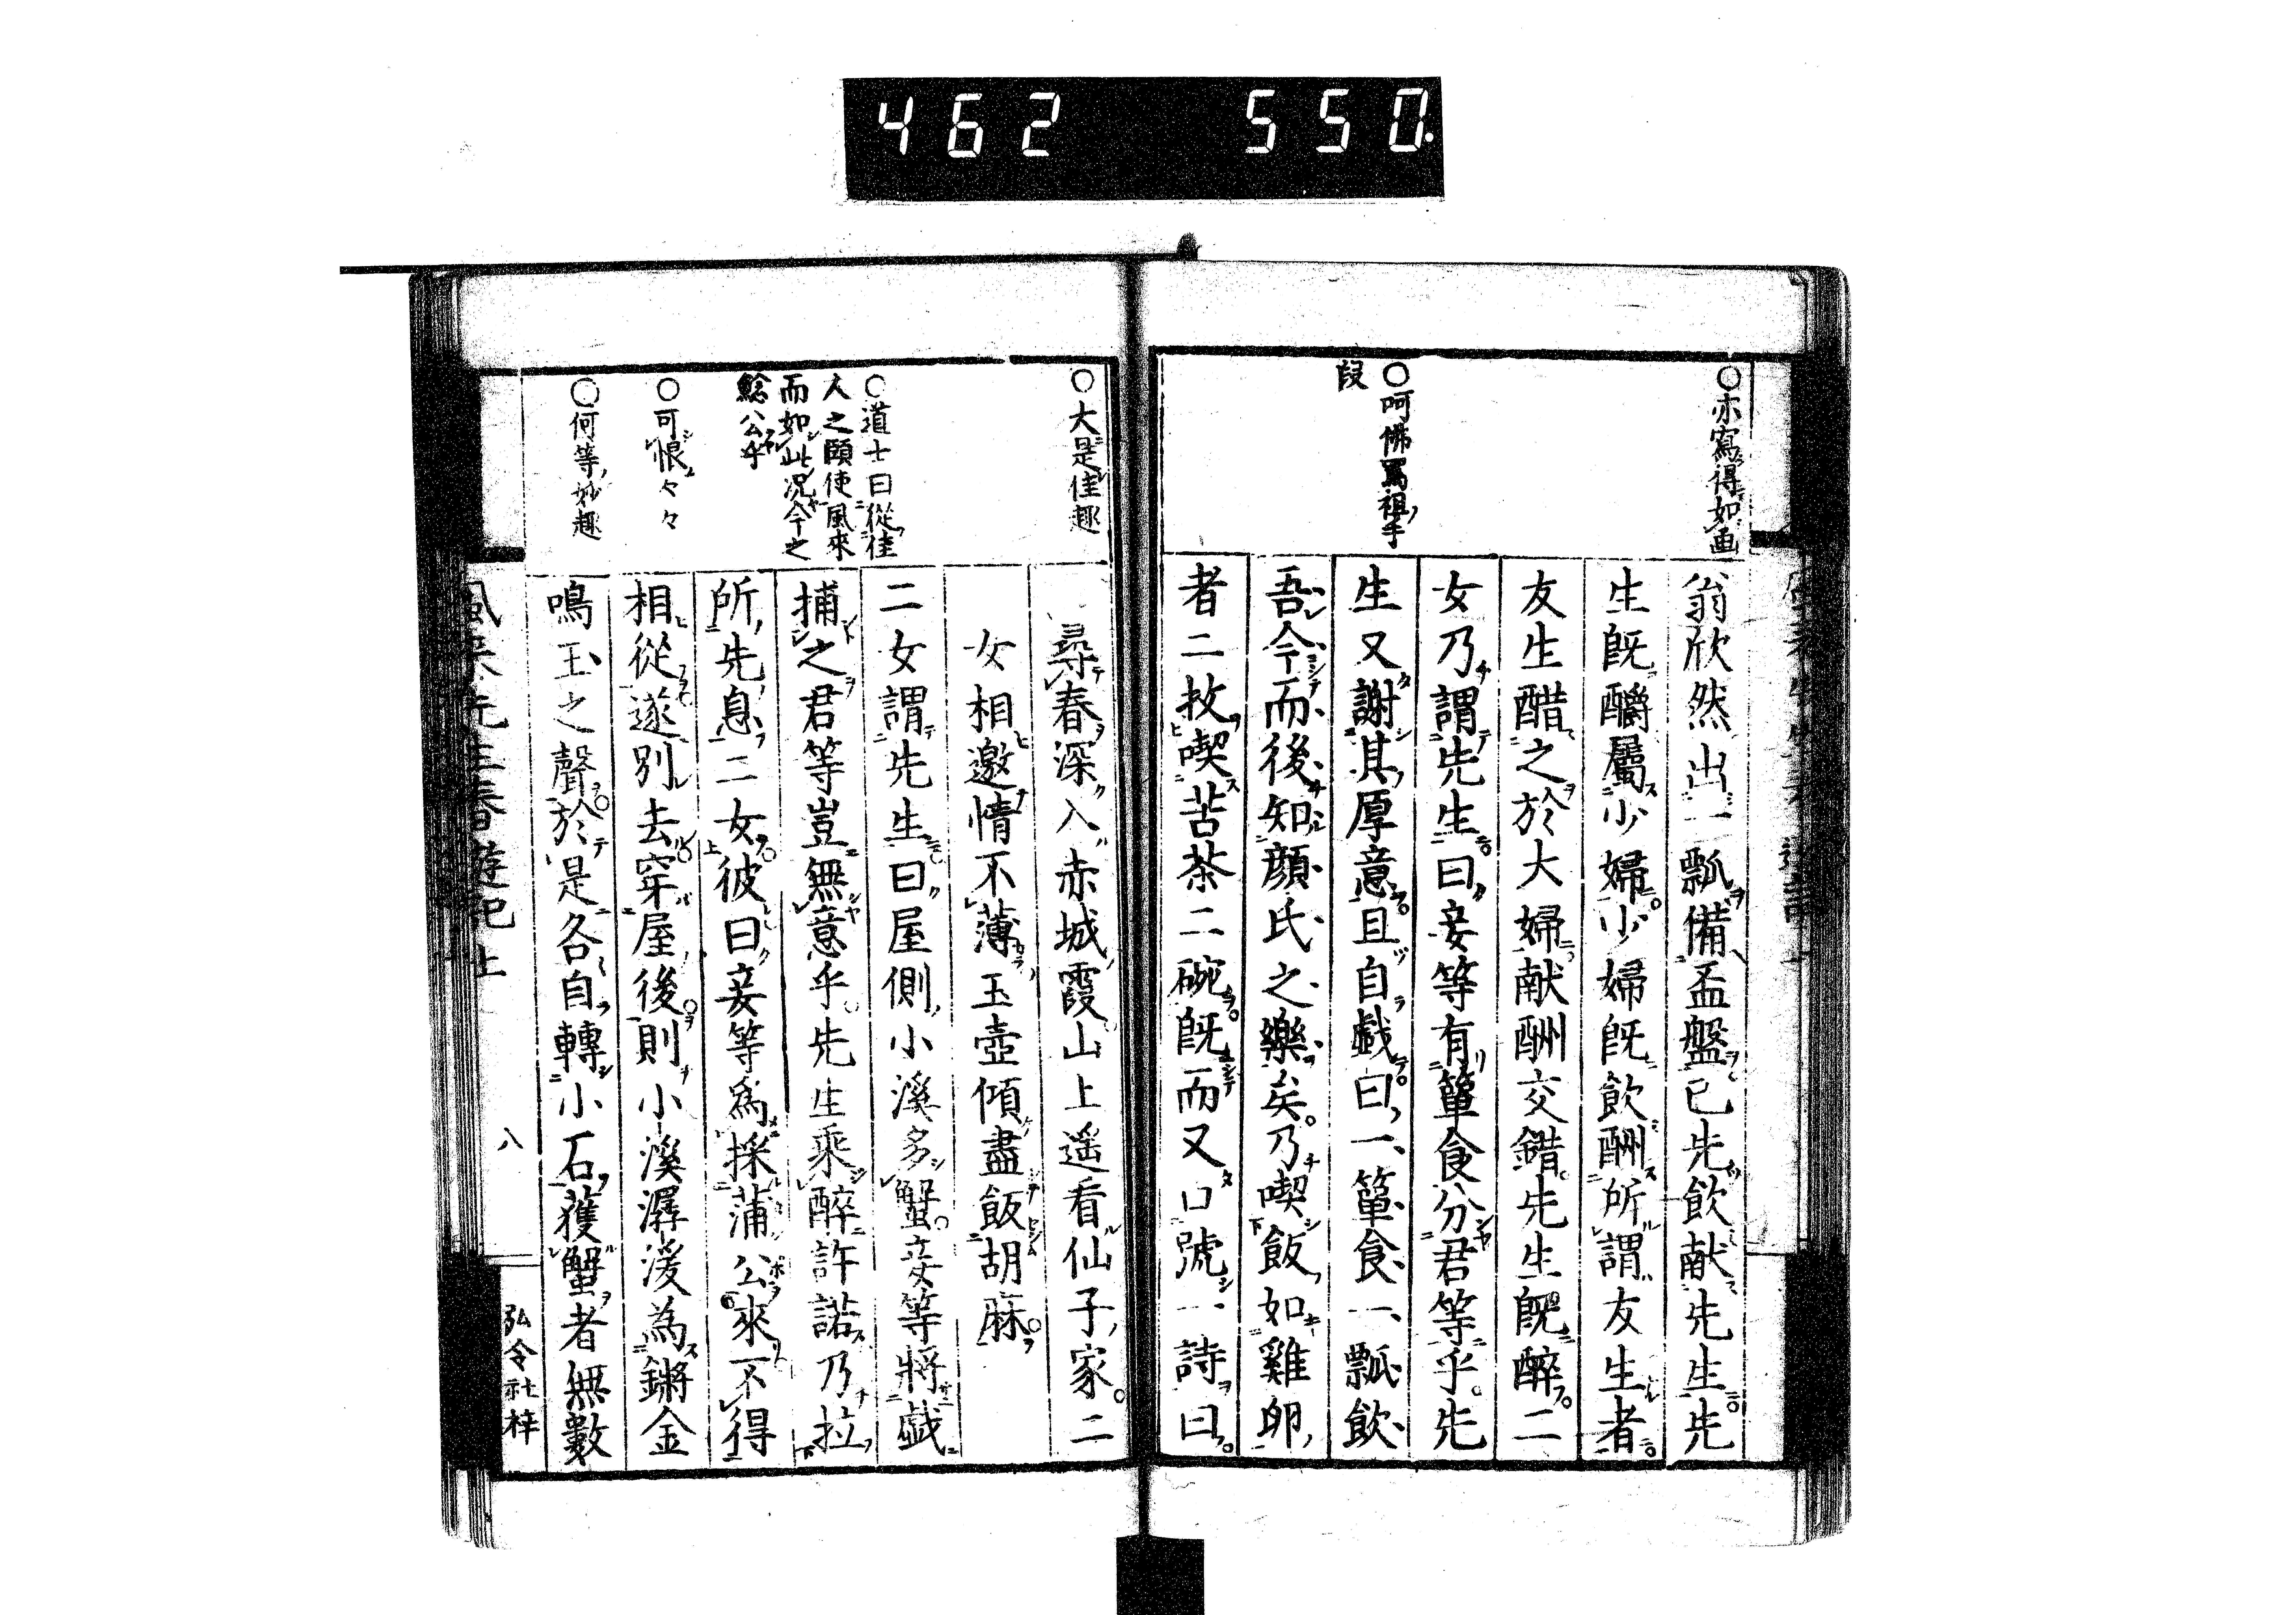 462 550
○亦寫得如画
○呵佛罵祖手
段
翁欣然出一瓢備盃盤已先飲献先生先
生既釂屬少婦少婦既飲酬所謂友生者
友生醋之於大婦献酬交錯先生既醉二
女乃謂先生曰妾等有簞食分君等乎先
生又謝其厚意且自戯曰一簞食一瓢飲
吾今而後知顔氏之樂矣乃喫飯如雞卵
者二枚喫苦茶二碗既而又口號一詩曰
○大是佳趣
○道士曰從佳
人之頤使風來
而如此况今之
鯰公乎
○可恨々々
○何等妙趣
尋春深入赤城霞山上遥看仙子家二
女相邀情不薄玉壺傾盡飯胡麻
二女謂先生曰屋側小溪多蟹妾等將戯
捕之君等豈無意乎先生乘醉許諾乃拉
所先息二女彼曰妾等爲採蒲公來不得
相從遂別去穿屋後則小溪潺湲為鏘金
鳴玉之聲於是各自轉小石獲蟹者無數
風来先生春遊記上
八
弘令社梓